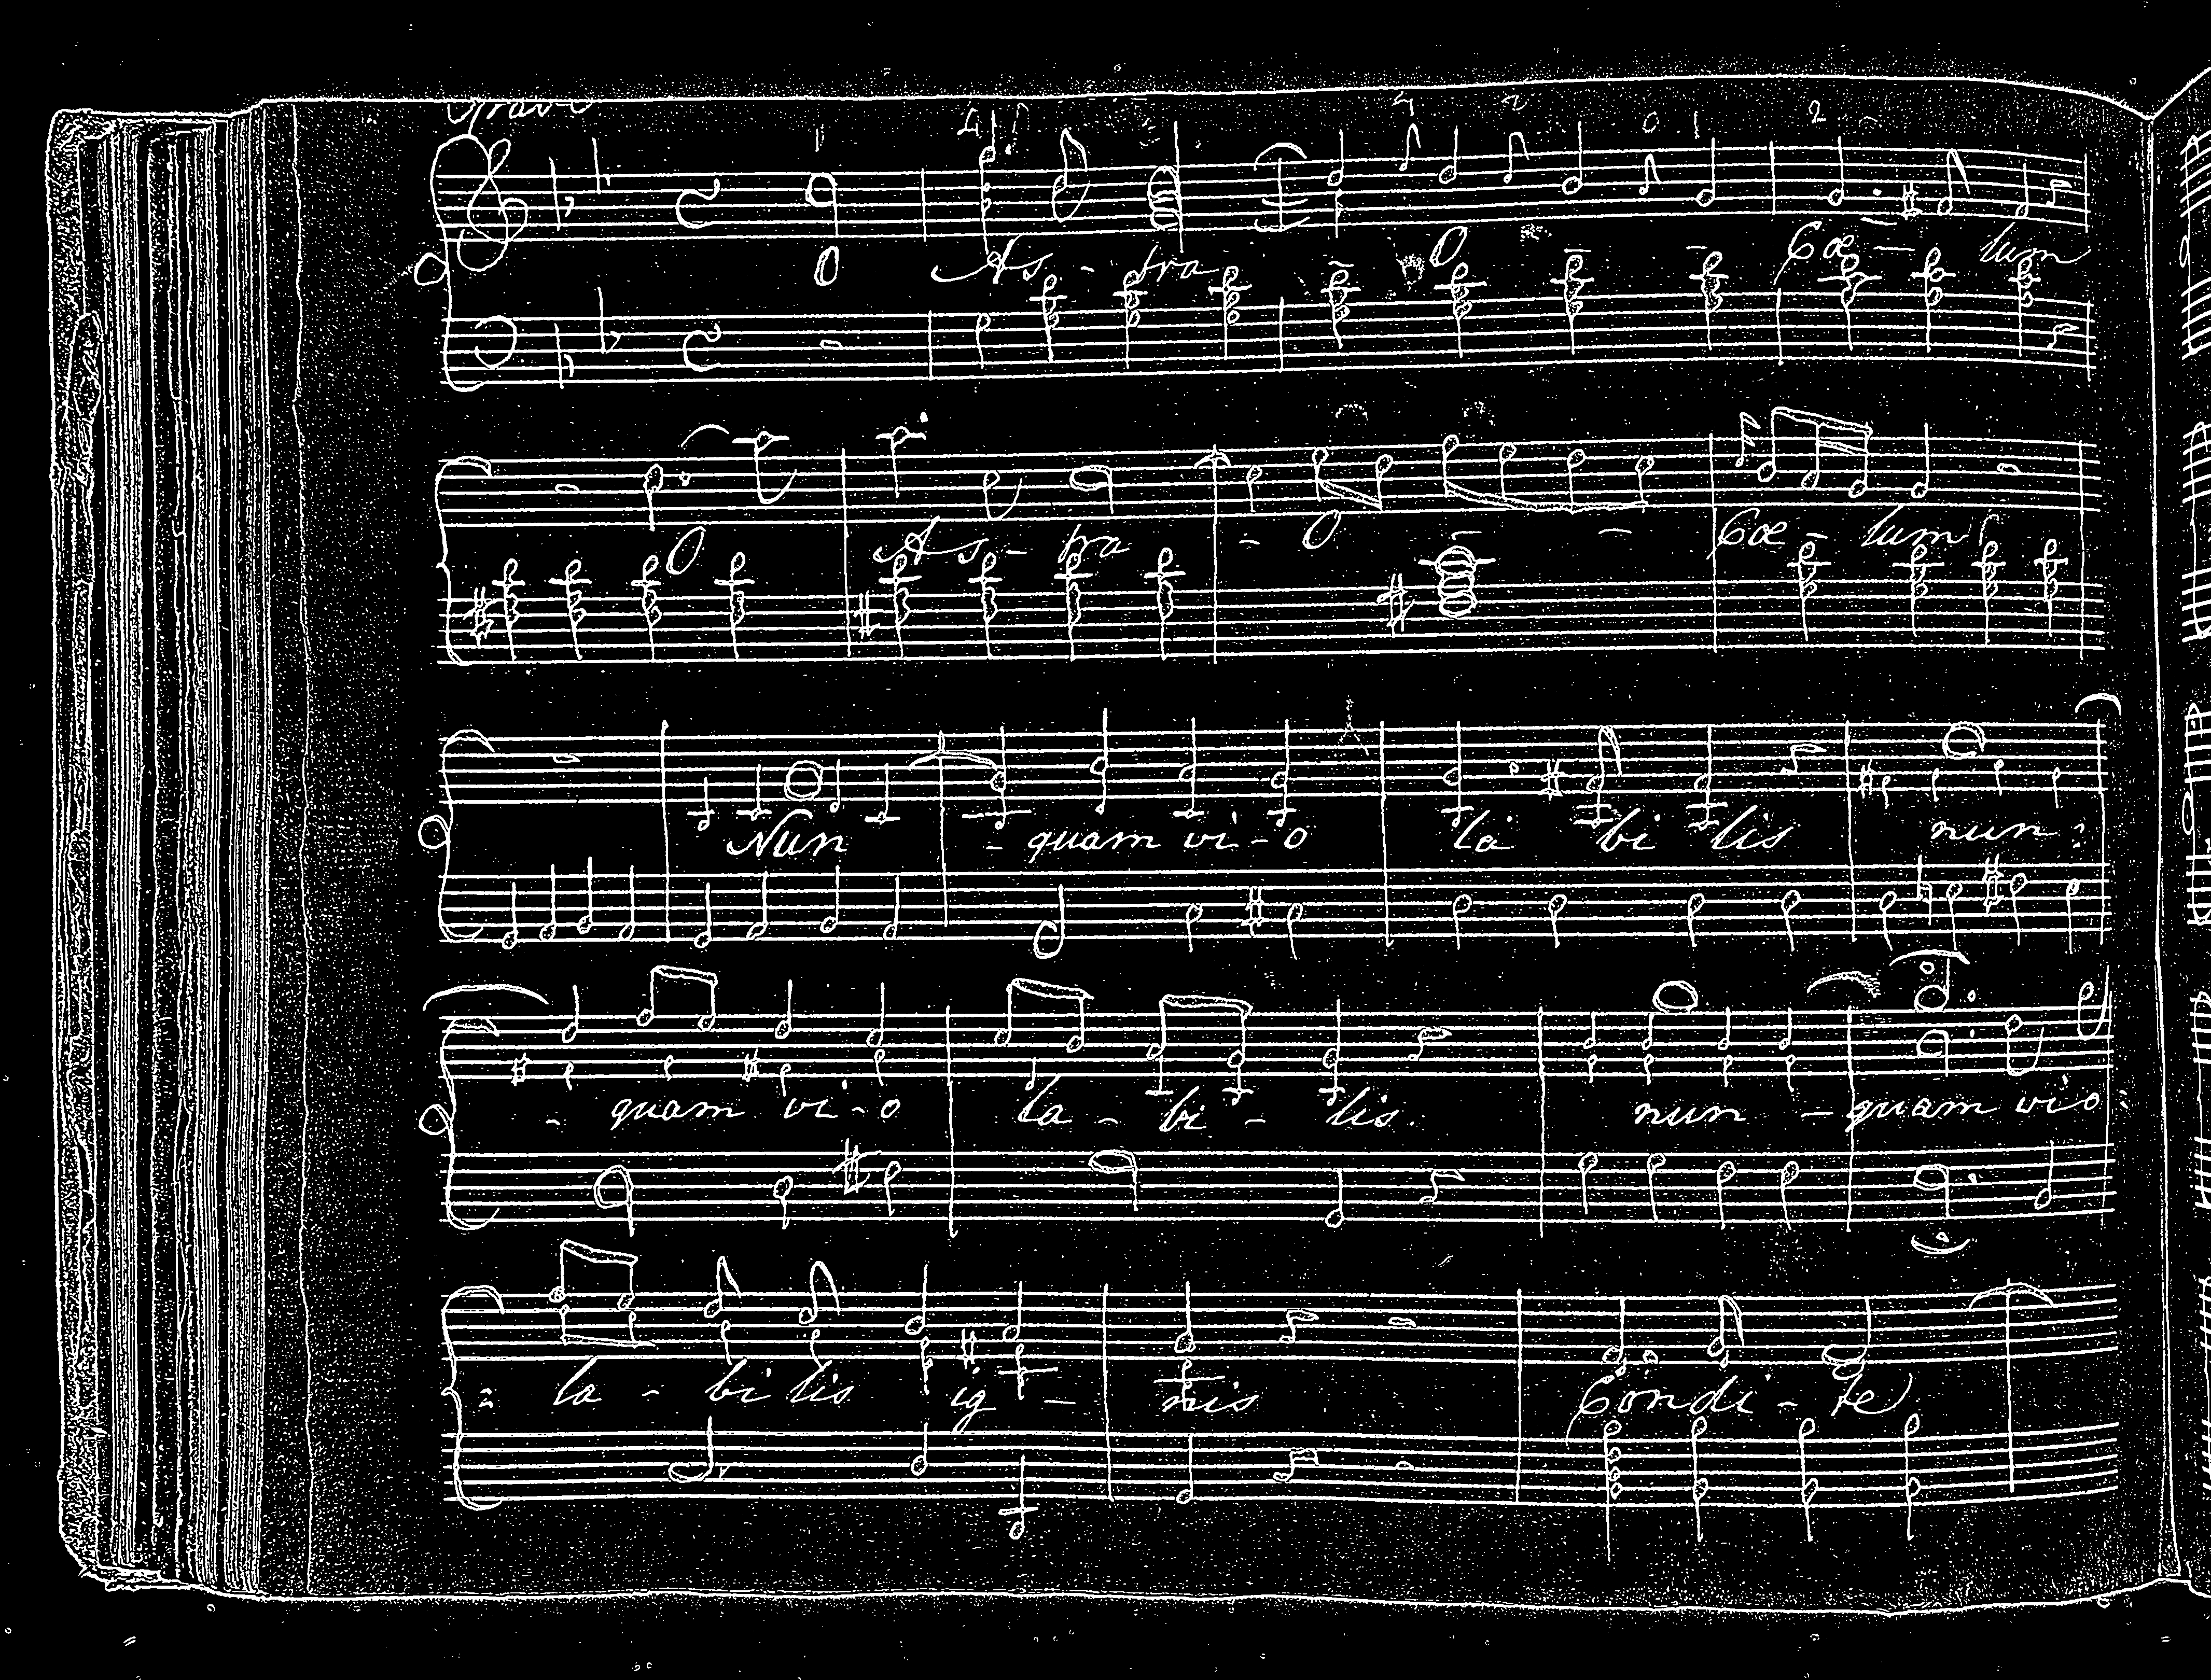 Grave
O As - tra - O - - Cœ - lum
O As - tra - O - - Cœ - lum
Nun - quam vi - o la bi lis nun :
- quam vi - o la - bi - lis. nun - quam vio :
: la - bi lis ig - nis Condi - te